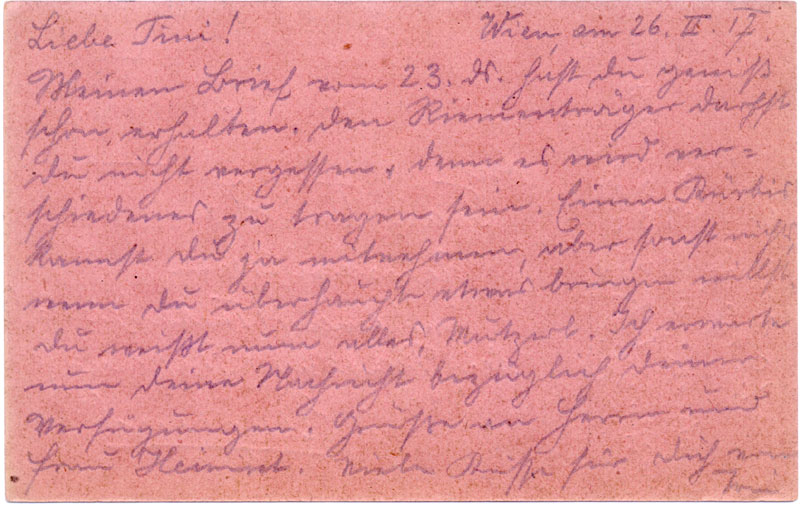 Liebe Trui! Wien, am 26. II. 17.
Meinen Brief vom 23. ds. hast du gewiß
schon erhalten. Den Riementräger darfst
du nicht vergessen, denn es wird ver=
schiedenes zu tragen sein. Einen Kürbis
kannst du ja mitnehmen, aber sonst nichts
wenn du überhaupt etwas bringen willst.
Du weißt nun alles, Mutzerl. Ich erwarte
nun deine Nachricht bezüglich deiner
Verfügungen. Grüße an Herrn und
Frau Heinret. Viele Küsse für dich von